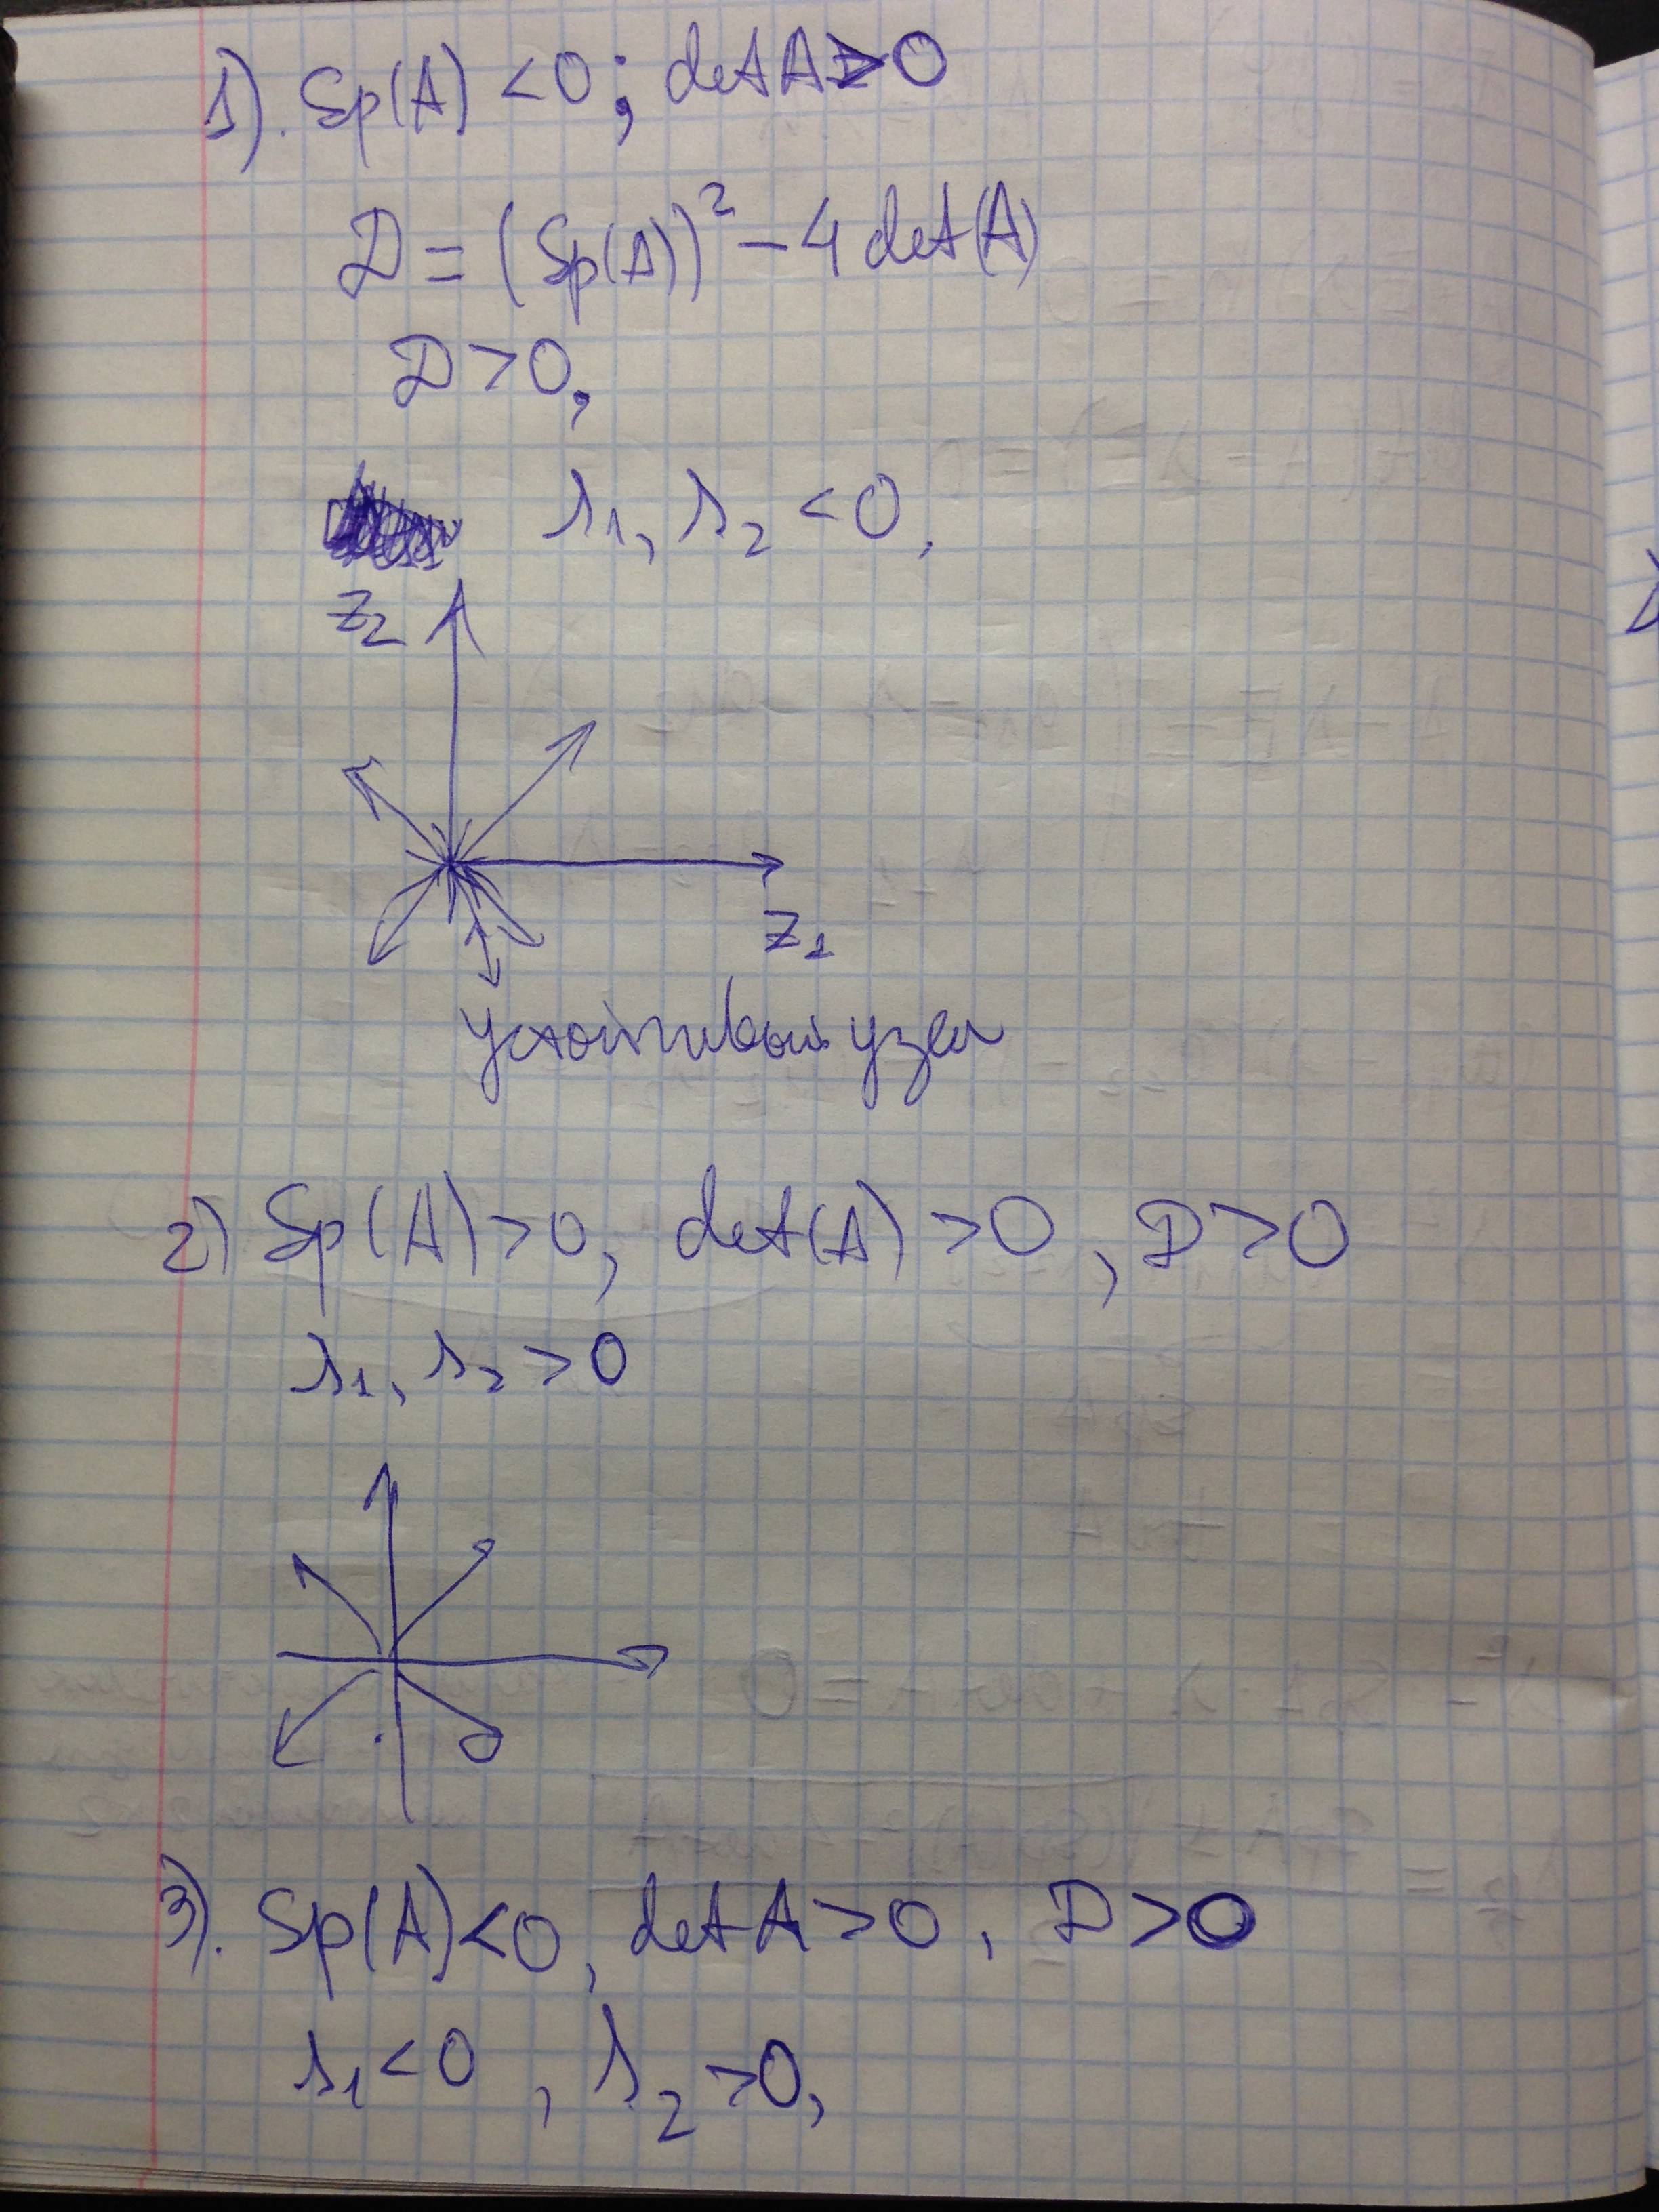 1). Sp(A) <0; det A>0
D = (Sp(A))² - 4 det(A)
D >0,
λ₁, λ₂ <0,
z₂
z₁
устойчивый узел
2) Sp(A)>0, det(A) >0, D>0
λ₁, λ₂ >0
3). Sp(A)<0, det A>0, D>0
λ₁<0, λ₂>0,